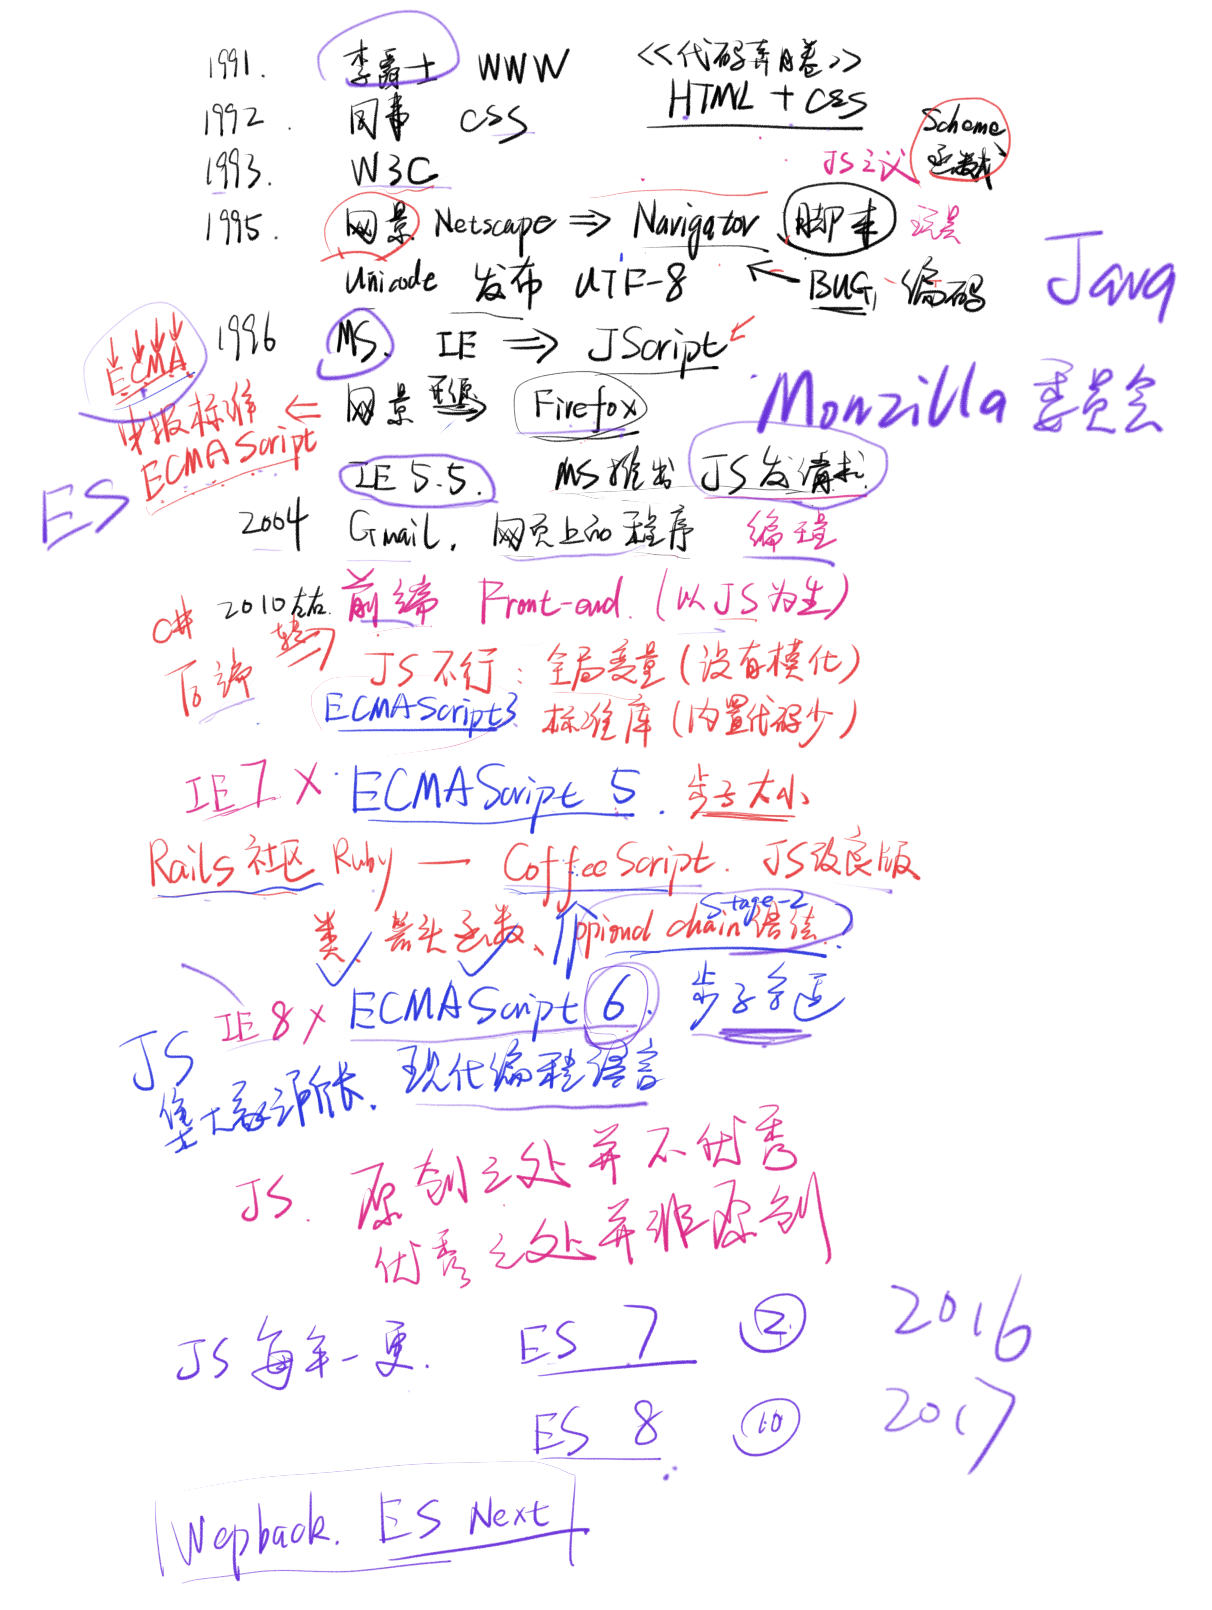 1991. 李爵士 WWW 《代码奔月卷》
HTML + CSS
1992. 同事 CSS
Scheme
函数式
1993. W3C
JS之父
1995. 网景 Netscape ⇒ Navigator 脚本
Unicode 发布 UTF-8 ← BUG, 编码
Java
1996 MS. IE ⇒ JScript
ECMA
网景 开源 → Firefox
Monzilla 委员会
申报标准
ECMAScript
ES
IE 5.5. MS推出 JS发请求
2004 Gmail. 网页上的程序 编程
2010左右. 前端 Front-end. (以JS为生)
C# 转
JS不行: 全局变量 (没有模化)
ECMAScript3 标准库 (内置代码少)
IE7 X ECMAScript 5. 步子太小
Rails社区 Ruby — CoffeeScript. JS改良版
Stage-2
类、箭头函数、ppional chain 语法
IE 8 X ECMAScript 6. 步子合适
JS
集大家所长. 现代编程语言
JS. 原创之处并不优秀
优秀之处并非原创
JS每年一更. ES 7 2. 2016
ES 8 10 2017
Wepback. ES Next